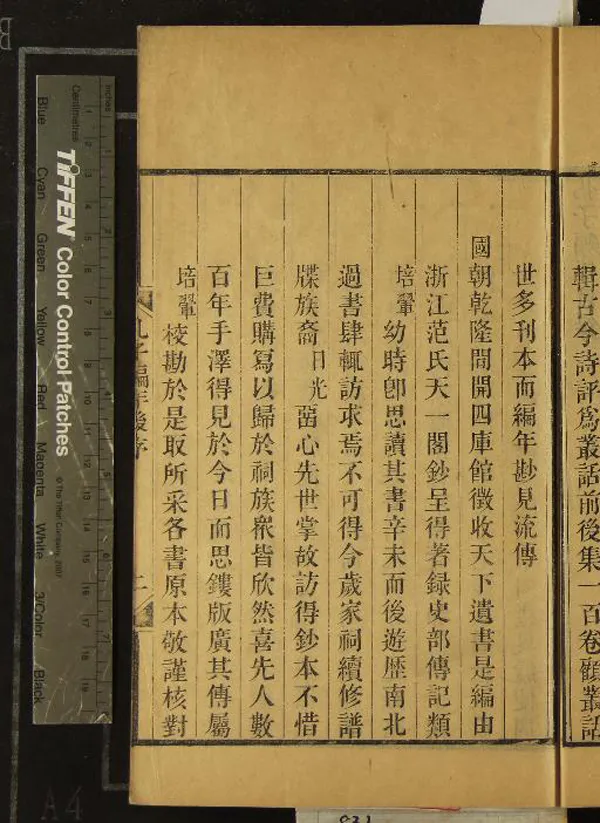 輯古今詩評爲叢話前後集一百卷顧叢話
世多刊本而編年尠見流傳
國朝乾隆間開四庫館徵收天下遺書是編由
浙江范氏天一閣鈔呈得著録史部傳記類
培翬幼時卽思讀其書辛未而後遊歷南北
過書肆輒訪求焉不可得今歲家祠續修譜
牒族裔日光畱心先世掌故訪得鈔本不惜
巨費購寫以歸於祠族衆皆欣然喜先人數
百年手澤得見於今日而思鏤版廣其傳屬
培翬校勘於是取所采各書原本敬謹核對
孔子編年後序 二
inches
Centimetres
TIFFEN Color Control Patches
© The Tiffen Company, 2007
Blue
Cyan
Green
Yellow
Red
Magenta
White
3/Color
Black
B
A4